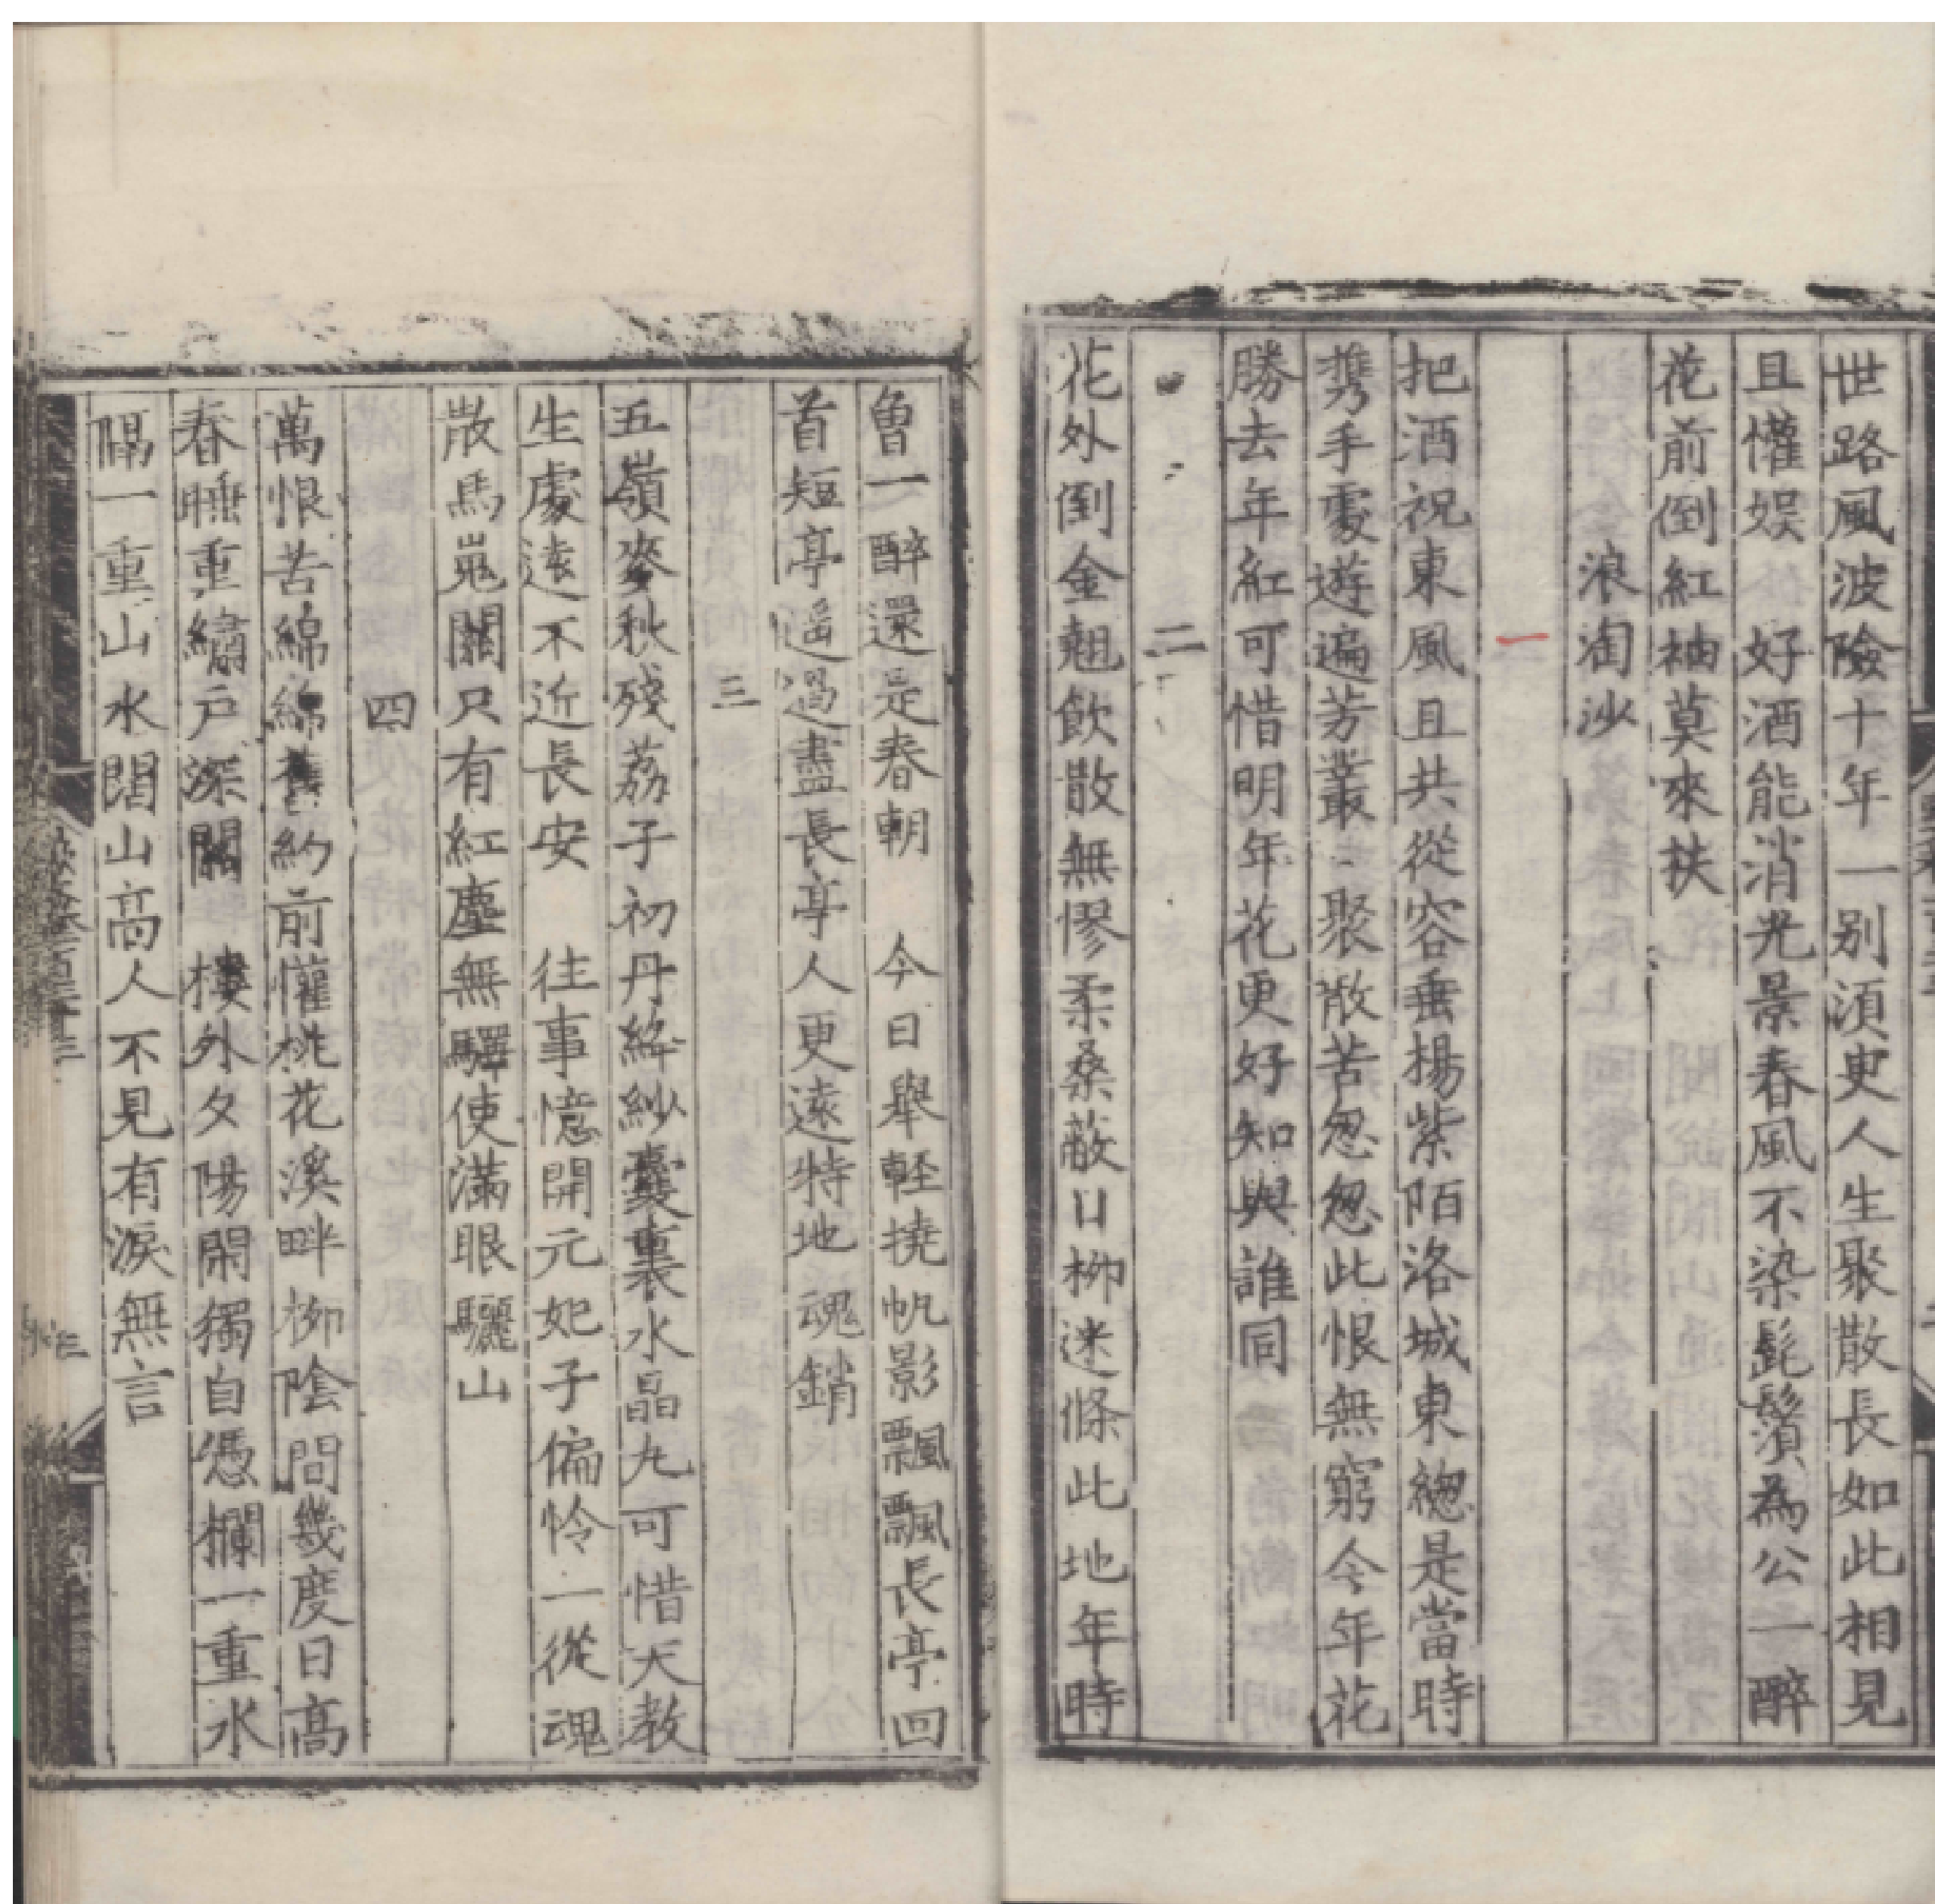 世路風波險十年一别湏㬰人生聚散長如此相見
且懽娱　好酒能消光景春風不染髭鬚為公一醉
花前倒紅袖莫來扶
浪淘沙
一
把酒祝東風且共從容垂楊紫陌洛城東緫是當時
携手處遊遍芳叢　聚散苦怱怱此恨無窮今年花
勝去年紅可惜明年花更好知與誰同
二
花外倒金翹飲散無憀柔桑蔽日柳迷條此地年時
曾一醉還是春朝　今日舉軽橈帆影飄飄長亭回
首短亭遥過盡長亭人更逺特地魂銷
三
五嶺麥秋殘荔子初丹絳紗囊裏水晶丸可惜天教
生處逺不近長安　往事憶開元妃子偏怜一從魂
散馬嵬關只有紅塵無驛使滿眼驪山
四
萬恨苦綿綿舊約前懽桃花溪畔柳陰間幾度日髙
春睡重繡戸深關　樓外夕陽閑獨自憑欄一重水
隔一重山水闊山髙人不見有淚無言